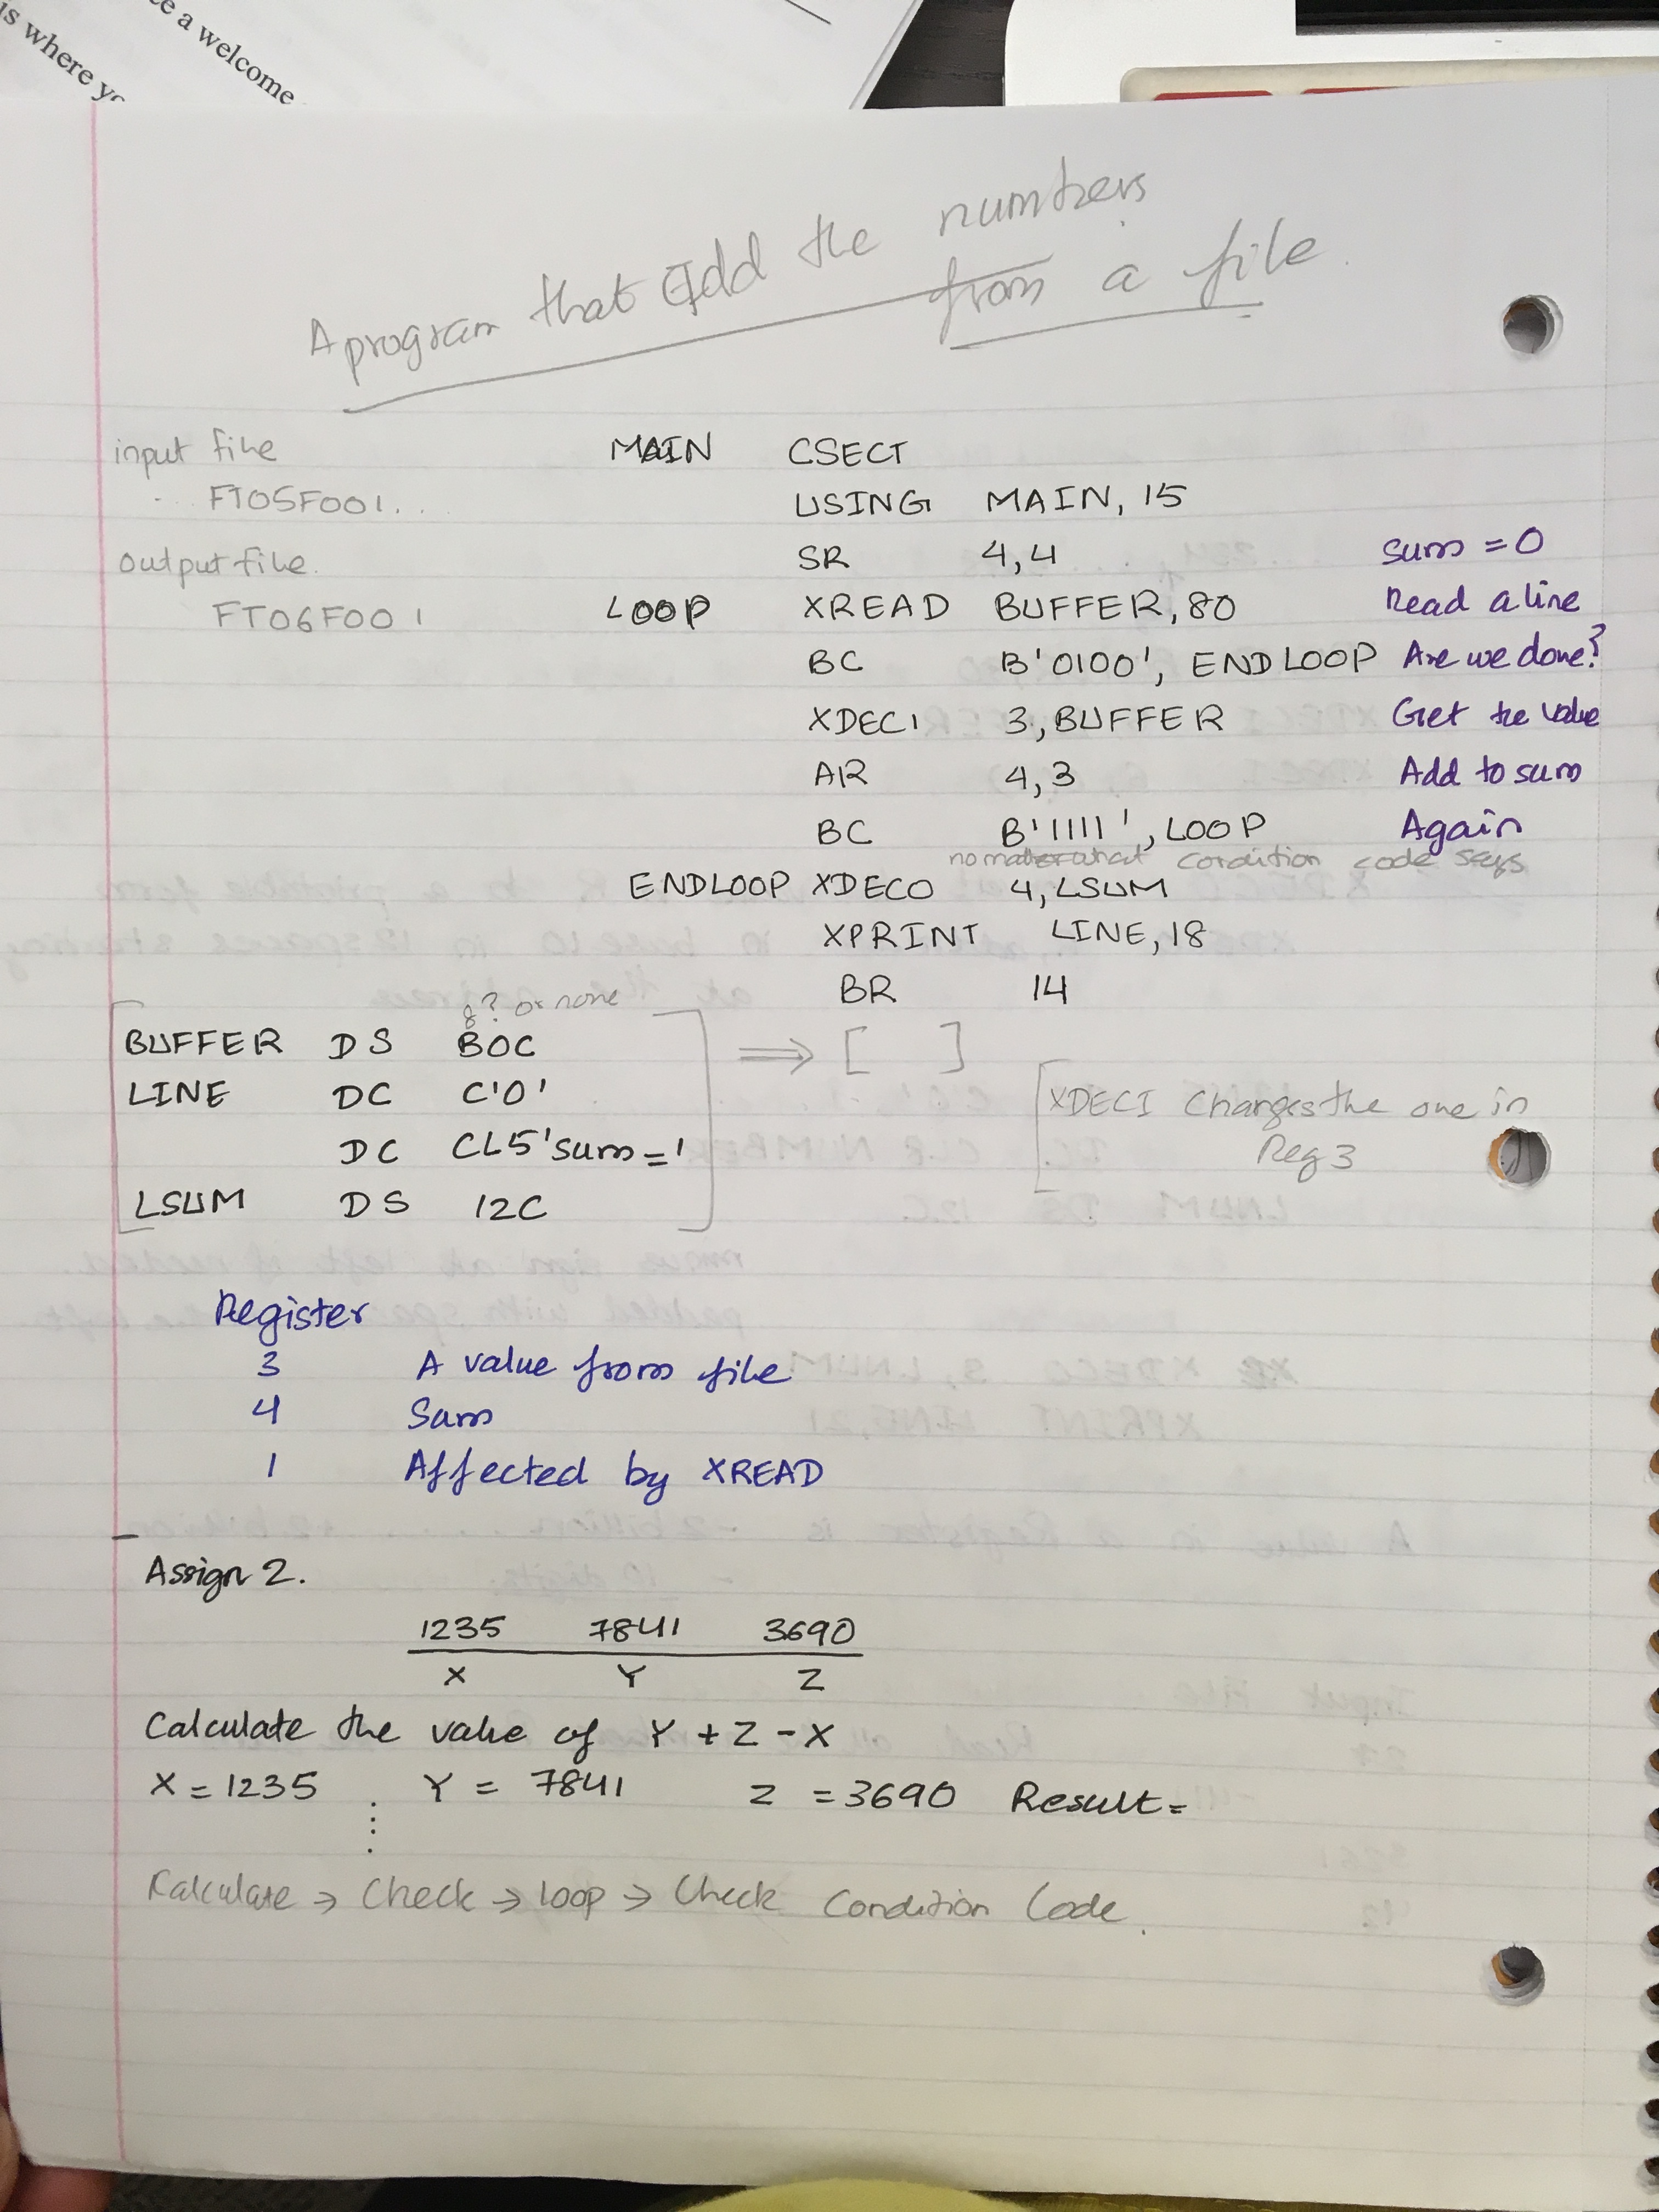 is where
e a welcome
A program that Add the numbers
from a file.
input file
FT05F001..
output file.
FT06F001
MAIN CSECT
USING MAIN, 15
SR 4,4 sum = 0
LOOP XREAD BUFFER, 80 Read a line
BC B'0100', ENDLOOP Are we done?
XDECI 3, BUFFER Get the value
AR 4,3 Add to sum
BC B'1111', LOOP Again
no matter what condition code says
ENDLOOP XDECO 4, LSUM
XPRINT LINE, 18
BR 14
8? or none
BUFFER DS 80C
LINE DC C'0'
DC CL5'sum='
LSUM DS 12C
⇒ [ ]
[XDECI Changes the one in
Reg 3
Register
3 A value from file
4 Sum
1 Affected by XREAD
Assign 2.
1235 7841 3690
X Y Z
Calculate the value of Y + Z - X
X = 1235 Y = 7841 Z = 3690 Result =
Calculate → Check → loop → Check Condition Code.